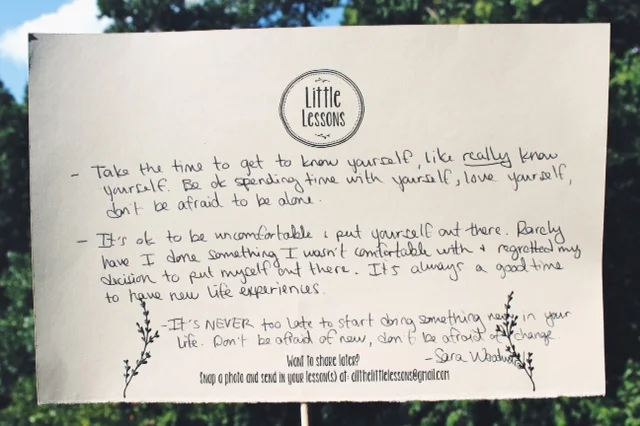 Little
Lessons
- Take the time to get to know yourself, like really know
yourself. Be ok spending time with yourself, love yourself,
don't be afraid to be alone.
- It's ok to be uncomfortable & put yourself out there. Rarely
have I done something I wasn't comfortable with + regretted my
decision to put myself out there. It's always a good time
to have new life experiences.
- It's NEVER too late to start doing something new in your
life. Don't be afraid of new, don't be afraid of change.
- Sara
Want to share later?
Snap a photo and send in your lesson(s) at: allthelittlelessons@gmail.com